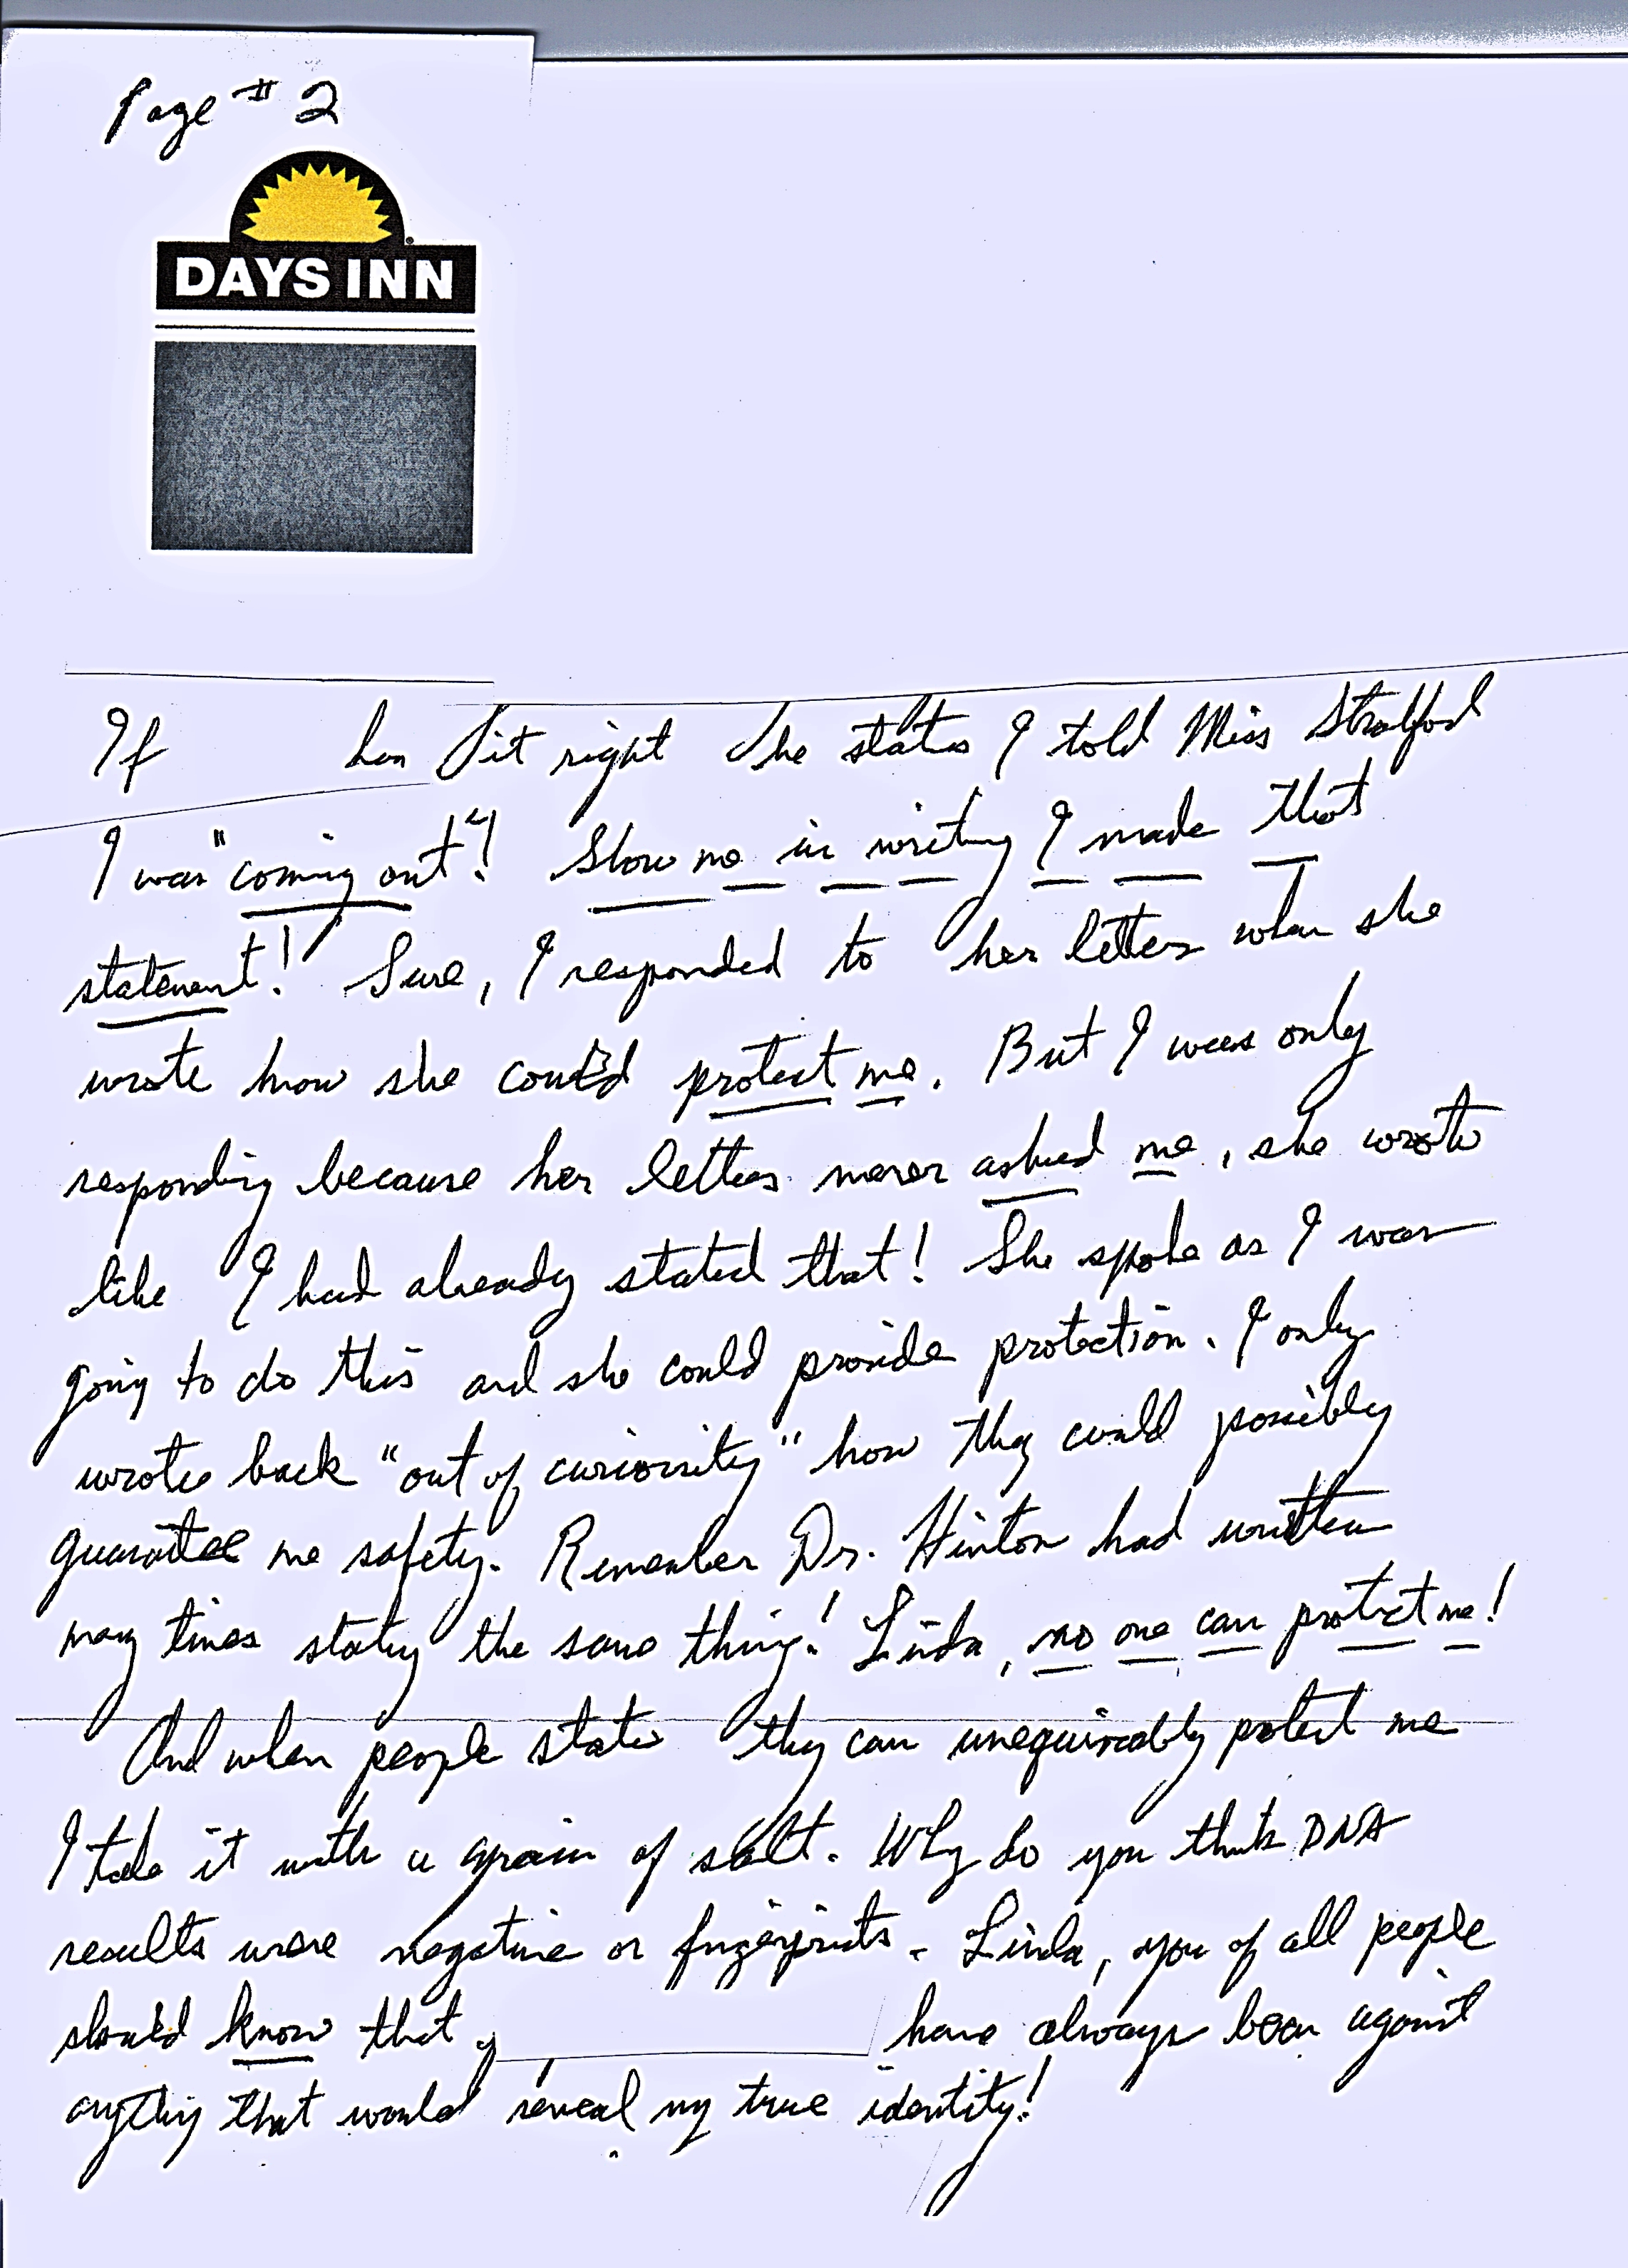 Page # 2
DAYS INN
If has it right She states I told Miss Stratford
I was "coming out"! Show me in writing I made that
statement! Sure, I responded to her letter when she
wrote how she could protect me. But I was only
responding because her letters never asked me, she wrote
like I had already stated that! She spoke as I was
going to do this and she could provide protection. I only
wrote back "out of curiosity" how they could possibly
guarantee me safety. Remember Dr. Hinton had written
many times stating the same thing! Linda, no one can protect me!
And when people state they can unequivocably protect me
I take it with a grain of salt. Why do you think DNA
results were negative or fingerprints. Linda, you of all people
should know that have always been against
anything that would reveal my true identity!